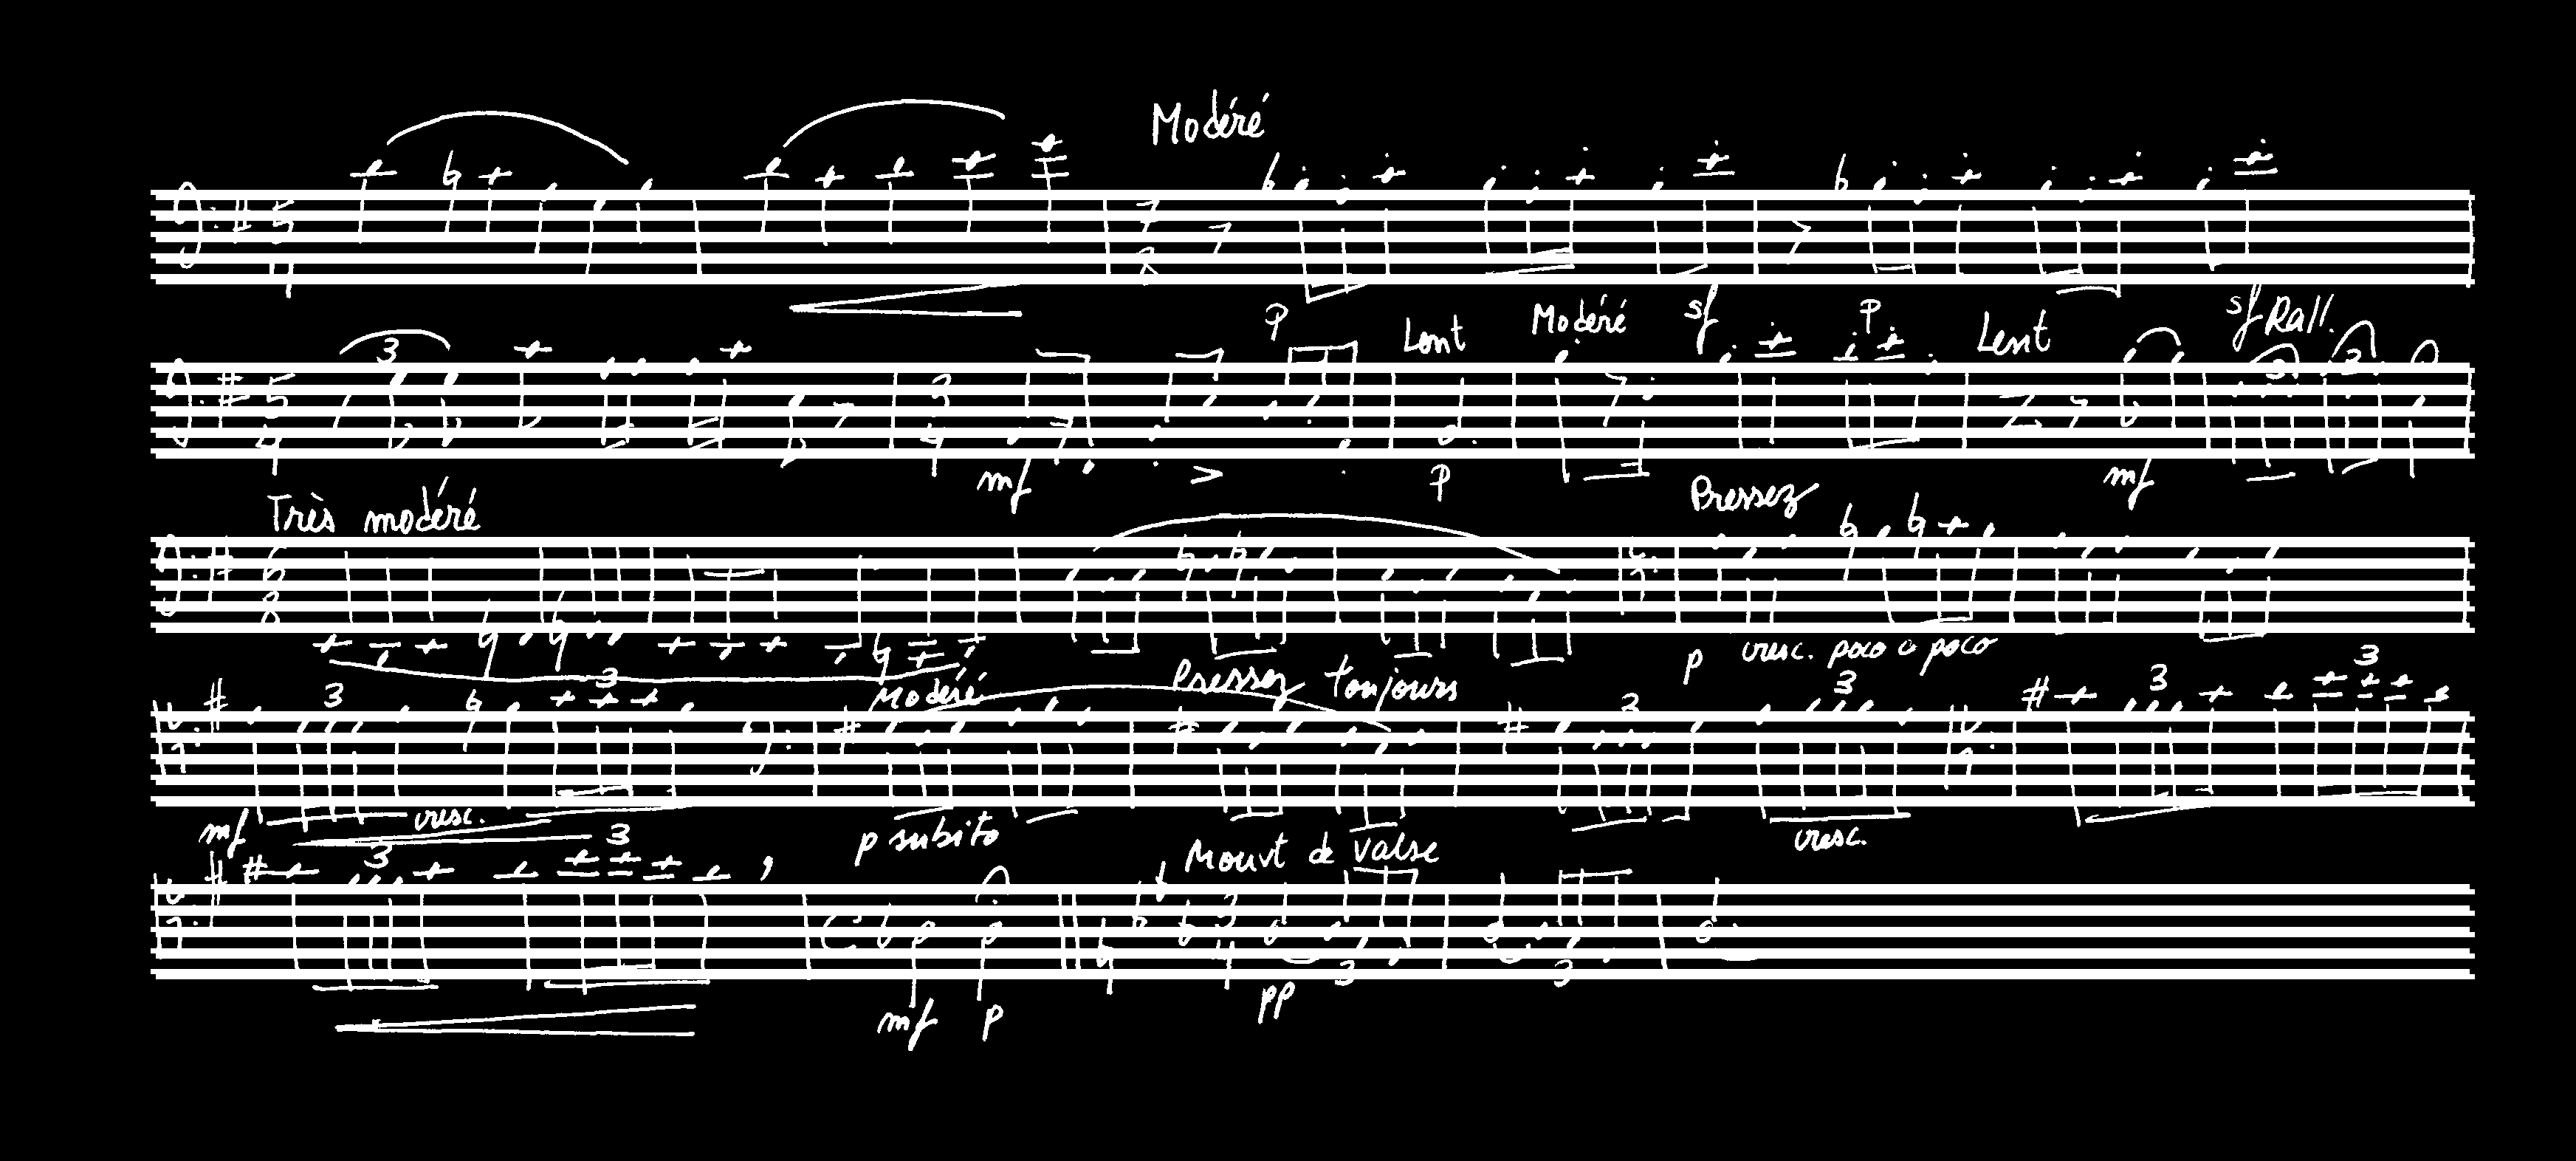 Modéré
p sf p sf Rall.
Lent Modéré Lent
3 3 3
mf > p mf
Très modéré Pressez
p cresc. poco a poco
Modéré Pressez toujours
3 3 3 3 3 3
mf cresc. p subito cresc.
Mouvt de Valse
3 3
mf p pp 3 3